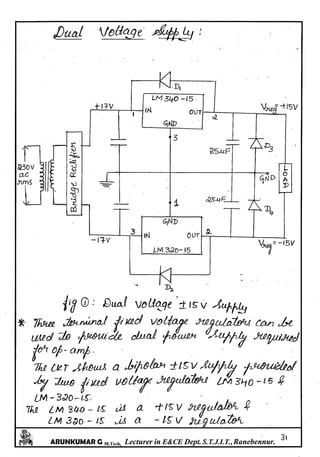 Dual Voltage Supply :
D1
LM 340-15
+17V
1
IN
OUT
2
Vreg = +15V
GND
3
230V
ac
rms
Bridge Rectifier
25µF
D3
GND
LOAD
1
25µF
D4
GND
-17V
3
IN
OUT
2
LM 320-15
Vreg = -15V
D2
fig ①: Dual voltage ±15V Supply
* Three terminal fixed voltage regulators can be
used to provide dual power supply required
for op-amp.
The CKT shows a bipolar ±15V supply provided
by two fixed voltage regulators LM340-15 &
LM-320-15.
The LM 340-15 is a +15V regulator &
LM 320-15 is a -15V regulator.
ARUNKUMAR G M.Tech, Lecturer in E&CE Dept. S.T.J.I.T., Ranebennur.
31